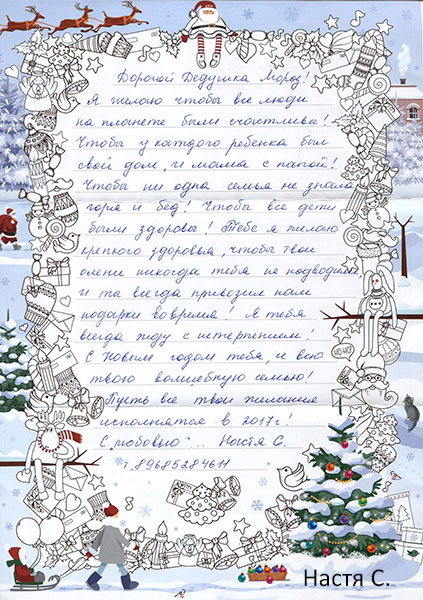 Дорогой Дедушка Мороз!
Я желаю чтобы все люди
на планете были счастливы!
Чтобы у каждого ребенка был
свой дом, и мама с папой!
Чтобы ни одна семья не знала
горя и бед! Чтобы все дети
были здоровы! Тебе я желаю
крепкого здоровья, чтобы твои
олени никогда тебя не подводили
и ты всегда привозил нам
подарки вовремя! Я тебя
всегда жду с нетерпением!
С Новым годом тебя, и всю
твою волшебную семью!
Пусть все твои желания
исполнятся в 2017г!
С любовью... Настя С.
т.89685284611
HO HO!
Настя С.